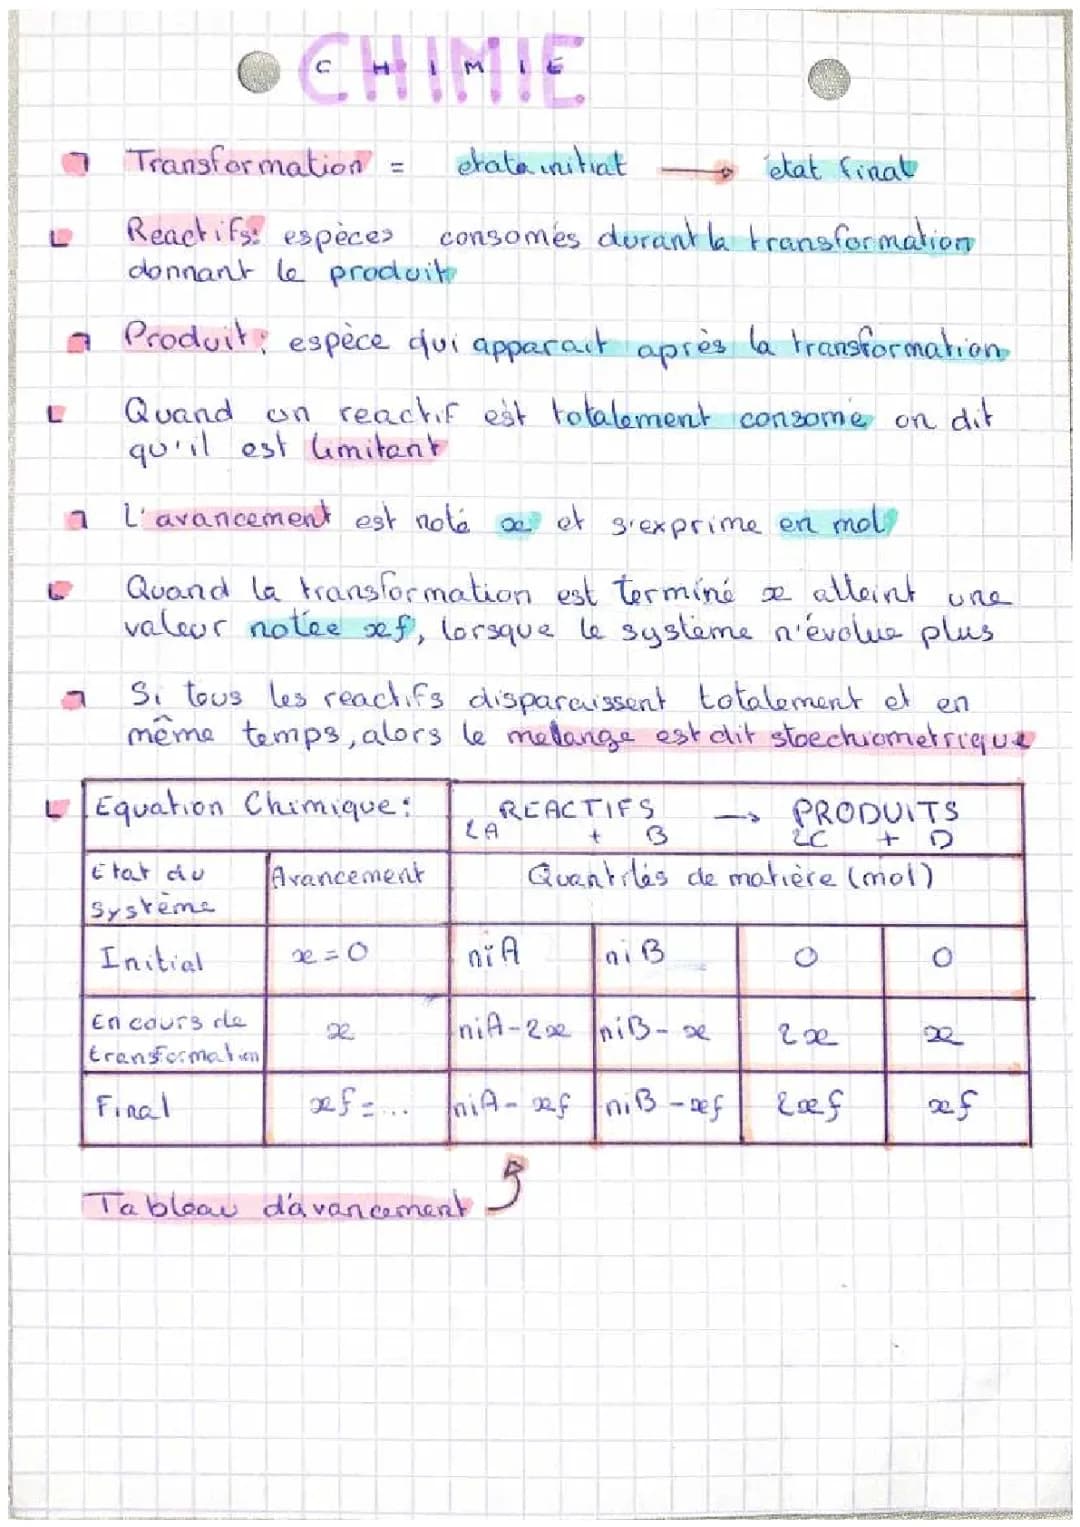 CHIMIE
Transformation = etata initial → état final
Reactifs: espèces consomés durant la transformation
donnant le produit
Produit: espèce qui apparait après la transformation
Quand un reactif est totalement consomé on dit
qu'il est limitant
L'avancement est noté x et s'exprime en mol
Quand la transformation est terminé x atteint une
valeur notée xf, lorsque le système n'évolue plus
Si tous les reactifs disparaissent totalement et en
même temps, alors le melange est dit stoechiometrique
Equation Chimique: REACTIFS → PRODUITS
2A + B 2C + D
Etat du système Avancement Quantités de matière (mol)
Initial x=0 niA niB 0 0
En cours de transformation x niA-2x niB-x 2x x
Final xf=... niA-xf niB-xf 2xf xf
Tableau d'avancement